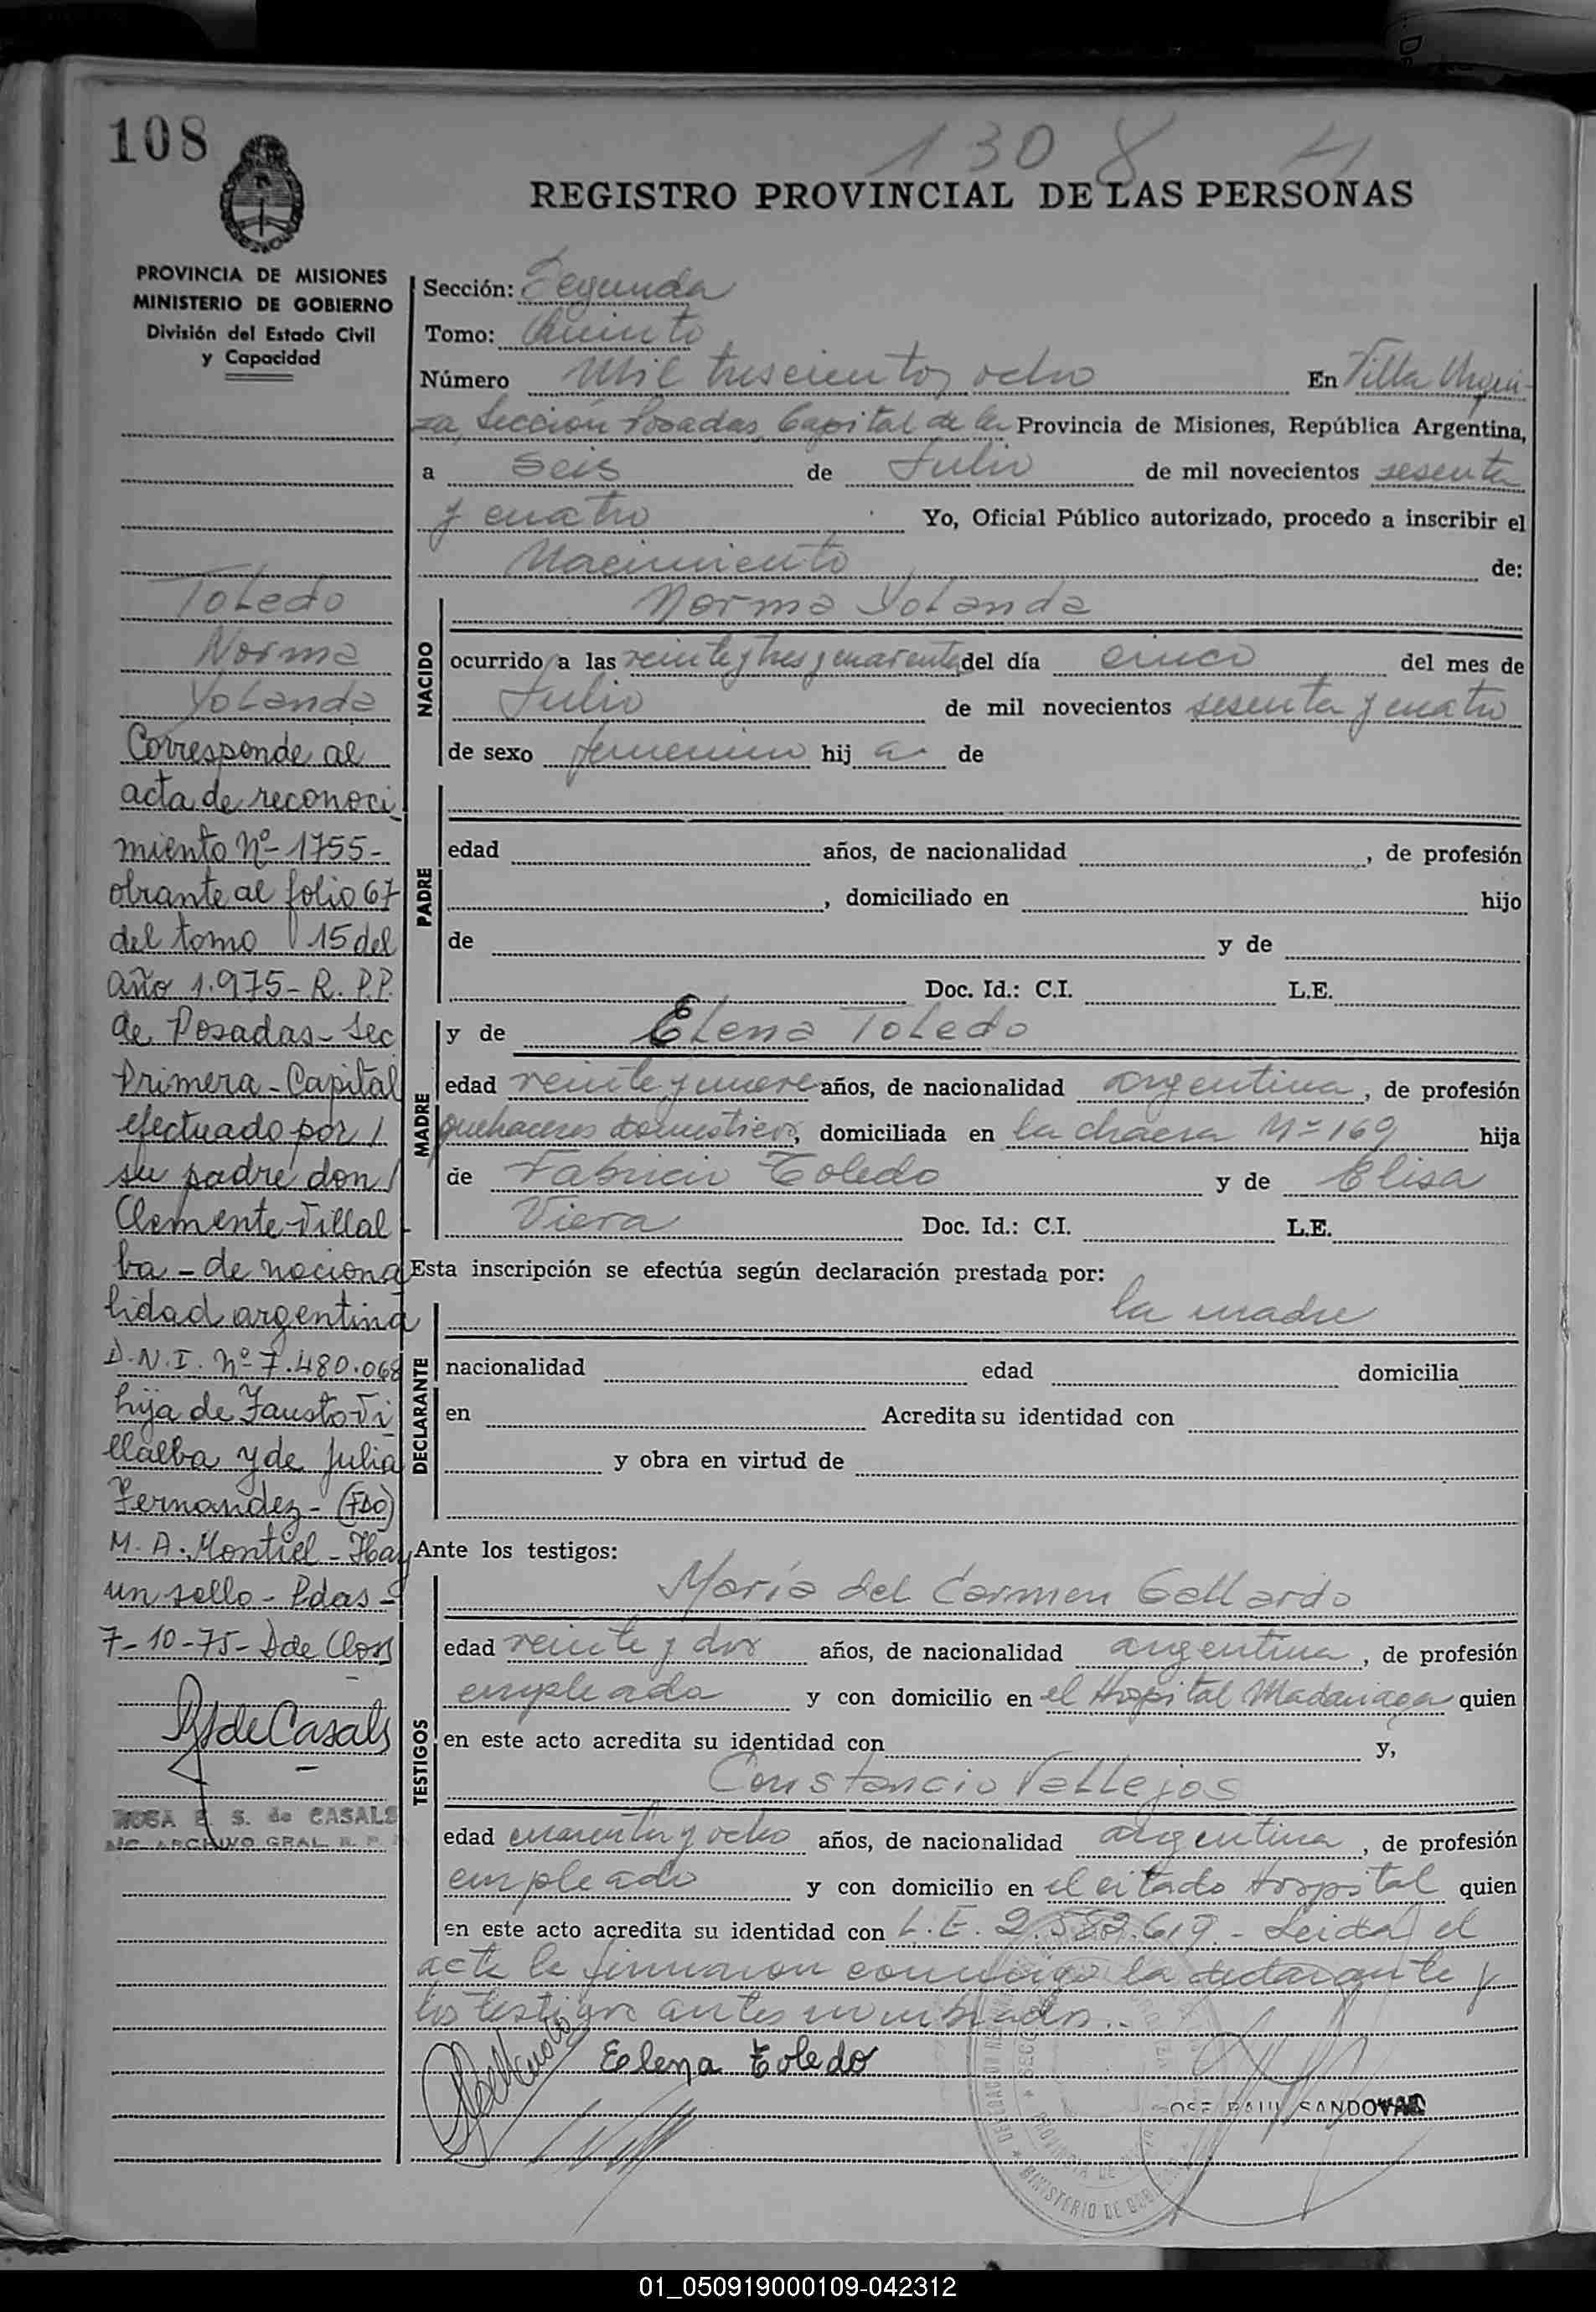 108
1308
REGISTRO PROVINCIAL DE LAS PERSONAS
PROVINCIA DE MISIONES
MINISTERIO DE GOBIERNO
División del Estado Civil
y Capacidad
Toledo
Norma
Yolanda
Corresponde al
acta de reconoci
miento Nº 1755-
obrante al folio 67
del tomo 15 del
año 1.975- R. P.P.
de Posadas- Sec
Primera - Capital
efectuado por /
su padre don /
Clemente Villal
ba - de naciona
lidad argentina
D.N.I. Nº 7.480.068
hija de Fausto Vi
llalba y de Julia
Fernandez - (FDO)
M. A. Montiel - Hay
un sello - Pdas -
7-10-75-
RSdeCasals
ROSA E. S. de CASALS
ARCHIVO GRAL. R. P.
Sección: Segunda
Tomo: Quinto
Número Mil trescientos ocho En Villa Urqui-
za, Sección Posadas, Capital de la Provincia de Misiones, República Argentina,
a seis de Julio de mil novecientos sesenta
y cuatro Yo, Oficial Público autorizado, procedo a inscribir el
Nacimiento de:
NACIDO
Norma Yolanda
ocurrido a las veinte y tres y cuarenta del día cinco del mes de
Julio de mil novecientos sesenta y cuatro
de sexo femenino hij a de
PADRE
edad años, de nacionalidad , de profesión
, domiciliado en hijo
de y de
Doc. Id.: C.I. L.E.
MADRE
y de Elena Toledo
edad veinte y nueve años, de nacionalidad argentina, de profesión
quehaceres domesticos, domiciliada en la chacra Nº 169 hija
de Fabricio Toledo y de Elisa
Viera Doc. Id.: C.I. L.E.
Esta inscripción se efectúa según declaración prestada por:
DECLARANTE
la madre
nacionalidad edad domicilia
en Acredita su identidad con
y obra en virtud de
Ante los testigos:
TESTIGOS
María del Carmen Gallardo
edad veinte y dos años, de nacionalidad argentina, de profesión
empleada y con domicilio en el Hospital Madariaga quien
en este acto acredita su identidad con y,
Constancio Vallejos
edad cuarenta y ocho años, de nacionalidad argentina, de profesión
empleado y con domicilio en el citado Hospital quien
en este acto acredita su identidad con L.E. 2.582.619.- Leida el
acta la firmaron conmigo la declarante y
los testigos antes nombrados.-
Elena Toledo
JOSE RAUL SANDOVAL
MINISTERIO DE GOBIERNO
01_050919000109-042312